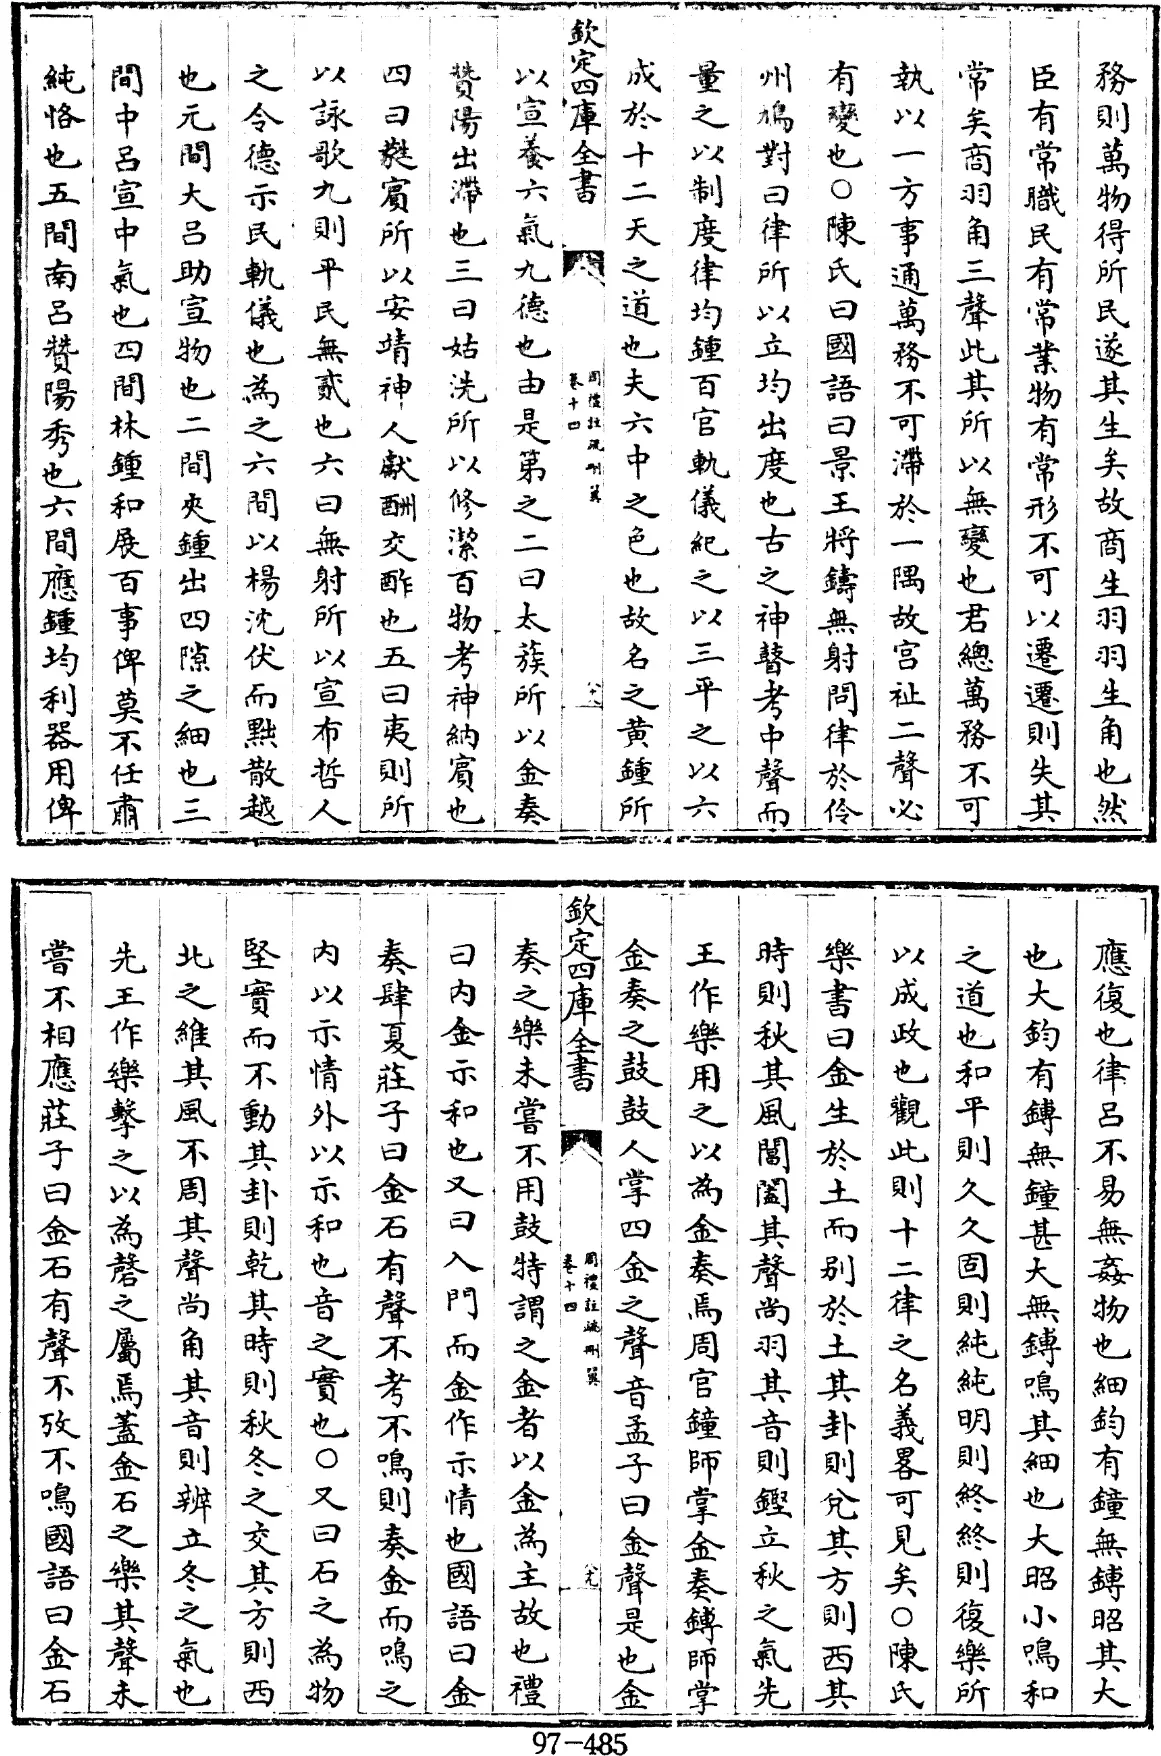 務則萬物得所民遂其生矣故商生羽羽生角也然
臣有常職民有常業物有常形不可以遷遷則失其
常矣商羽角三聲此其所以無變也君總萬務不可
執以一方事通萬務不可滯於一隅故宮祉二聲必
有變也○陳氏曰國語曰景王將鑄無射問律於伶
州鳩對曰律所以立均出度也古之神瞽考中聲而
量之以制度律均鍾百官軌儀紀之以三平之以六
成於十二天之道也夫六中之色也故名之黃鍾所
欽定四庫全書
周禮註疏刪翼
卷十四
以宣養六氣九德也由是第之二曰太蔟所以金奏
贊陽出滯也三曰姑洗所以修潔百物考神納賓也
四曰蕤賓所以安靖神人獻酬交酢也五曰夷則所
以詠歌九則平民無貳也六曰無射所以宣布哲人
之令德示民軌儀也為之六間以楊沈伏而黜散越
也元間大呂助宣物也二間夾鍾出四隙之細也三
間中呂宣中氣也四間林鍾和展百事俾莫不任肅
純恪也五間南呂贊陽秀也六間應鍾均利器用俾
應復也律呂不易無姦物也細鈞有鐘無鎛昭其大
也大鈞有鎛無鐘甚大無鎛鳴其細也大昭小鳴和
之道也和平則久久固則純純明則終終則復樂所
以成政也觀此則十二律之名義畧可見矣○陳氏
樂書曰金生於土而別於土其卦則兌其方則西其
時則秋其風閶闔其聲尚羽其音則鏗立秋之氣先
王作樂用之以為金奏焉周官鐘師掌金奏鎛師掌
金奏之鼓鼓人掌四金之聲音孟子曰金聲是也金
欽定四庫全書
周禮註疏刪翼
卷十四
奏之樂未嘗不用鼓特謂之金者以金為主故也禮
曰內金示和也又曰入門而金作示情也國語曰金
奏肆夏莊子曰金石有聲不考不鳴則奏金而鳴之
內以示情外以示和也音之實也○又曰石之為物
堅實而不動其卦則乾其時則秋冬之交其方則西
北之維其風不周其聲尚角其音則辨立冬之氣也
先王作樂擊之以為磬之屬焉蓋金石之樂其聲未
嘗不相應莊子曰金石有聲不攷不鳴國語曰金石
97-485